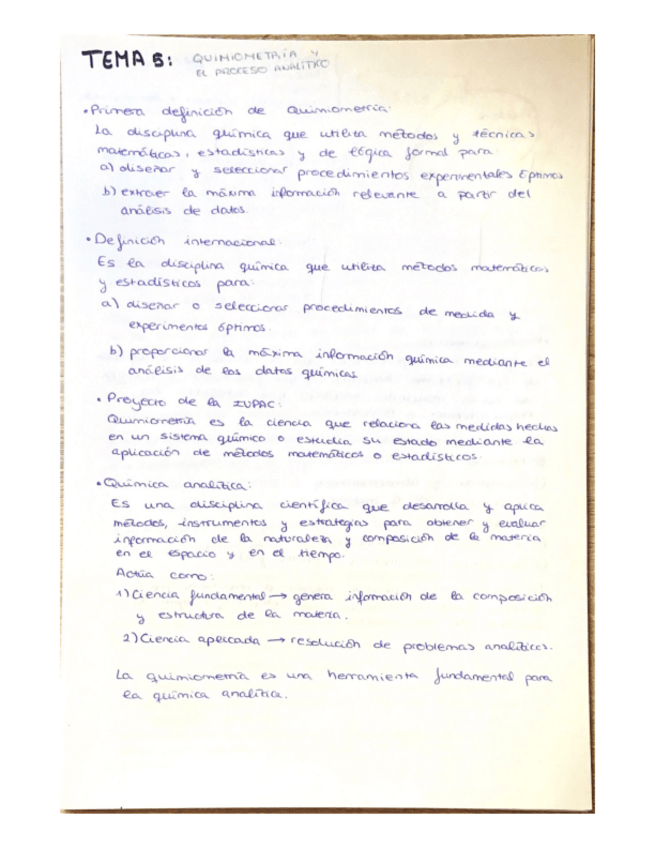 TEMA 5: QUIMIOMETRÍA Y
EL PROCESO ANALÍTICO
• Primera definición de Quimiometría:
La disciplina química que utiliza métodos y técnicas
matemáticas, estadísticas y de lógica formal para:
a) diseñar y seleccionar procedimientos experimentales óptimos
b) extraer la máxima información relevante a partir del
análisis de datos.
• Definición internacional:
Es la disciplina química que utiliza métodos matemáticos
y estadísticos para:
a) diseñar o seleccionar procedimientos de medida y
experimentos óptimos.
b) proporcionar la máxima información química mediante el
análisis de los datos químicos.
• Proyecto de la IUPAC:
Quimiometría es la ciencia que relaciona las medidas hechas
en un sistema químico o estudia su estado mediante la
aplicación de métodos matemáticos o estadísticos.
• Química analítica:
Es una disciplina científica que desarrolla y aplica
métodos, instrumentos y estrategias para obtener y evaluar
información de la naturaleza y composición de la materia
en el espacio y en el tiempo.
Actúa como:
1) Ciencia fundamental → genera información de la composición
y estructura de la materia.
2) Ciencia aplicada → resolución de problemas analíticos.
La quimiometría es una herramienta fundamental para
la química analítica.